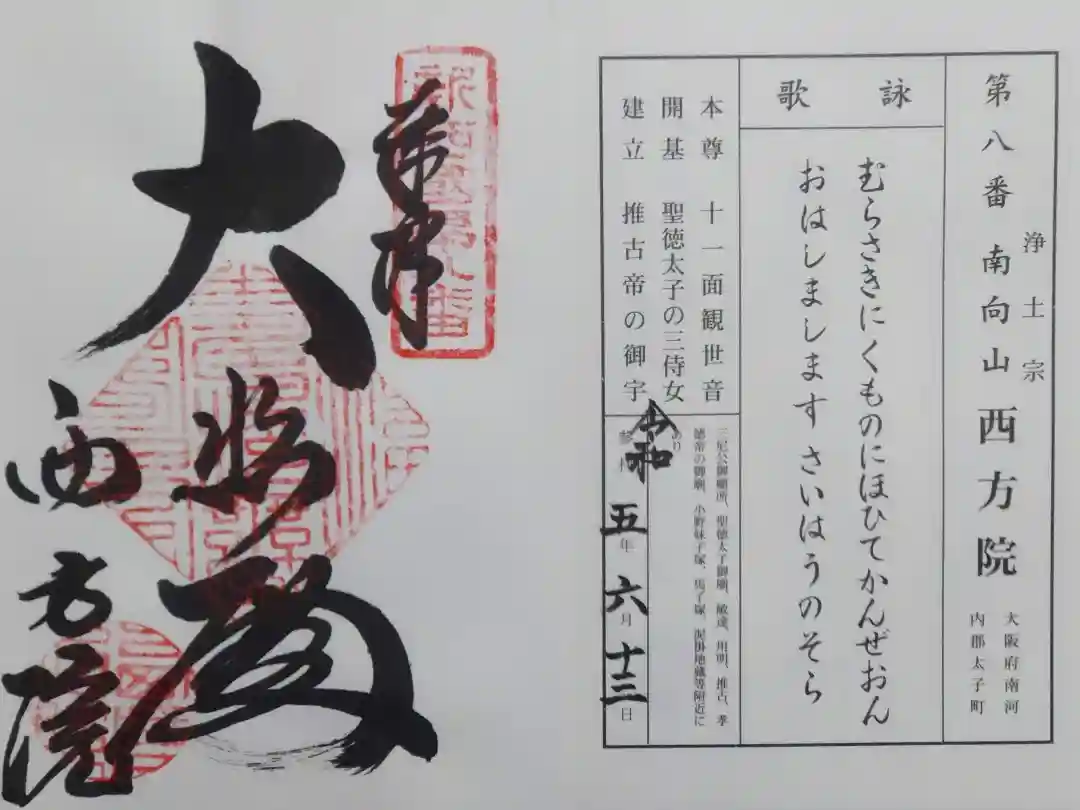 浄土宗
第八番 南向山 西方院
大阪府南河
内郡太子町
詠歌
むらさきにくものにほひてかんぜおん
おはしましますさいはうのそら
本尊 十一面観世音
開基 聖徳太子の三侍女
建立 推古帝の御宇
三尼公御廟所、聖徳太子御廟、敏達、用明、推古、孝
徳帝の御廟、小野妹子塚、馬子塚、泥掛地蔵等附近に
あり
令和五年六月十三日
奉拝
大悲殿
西方院